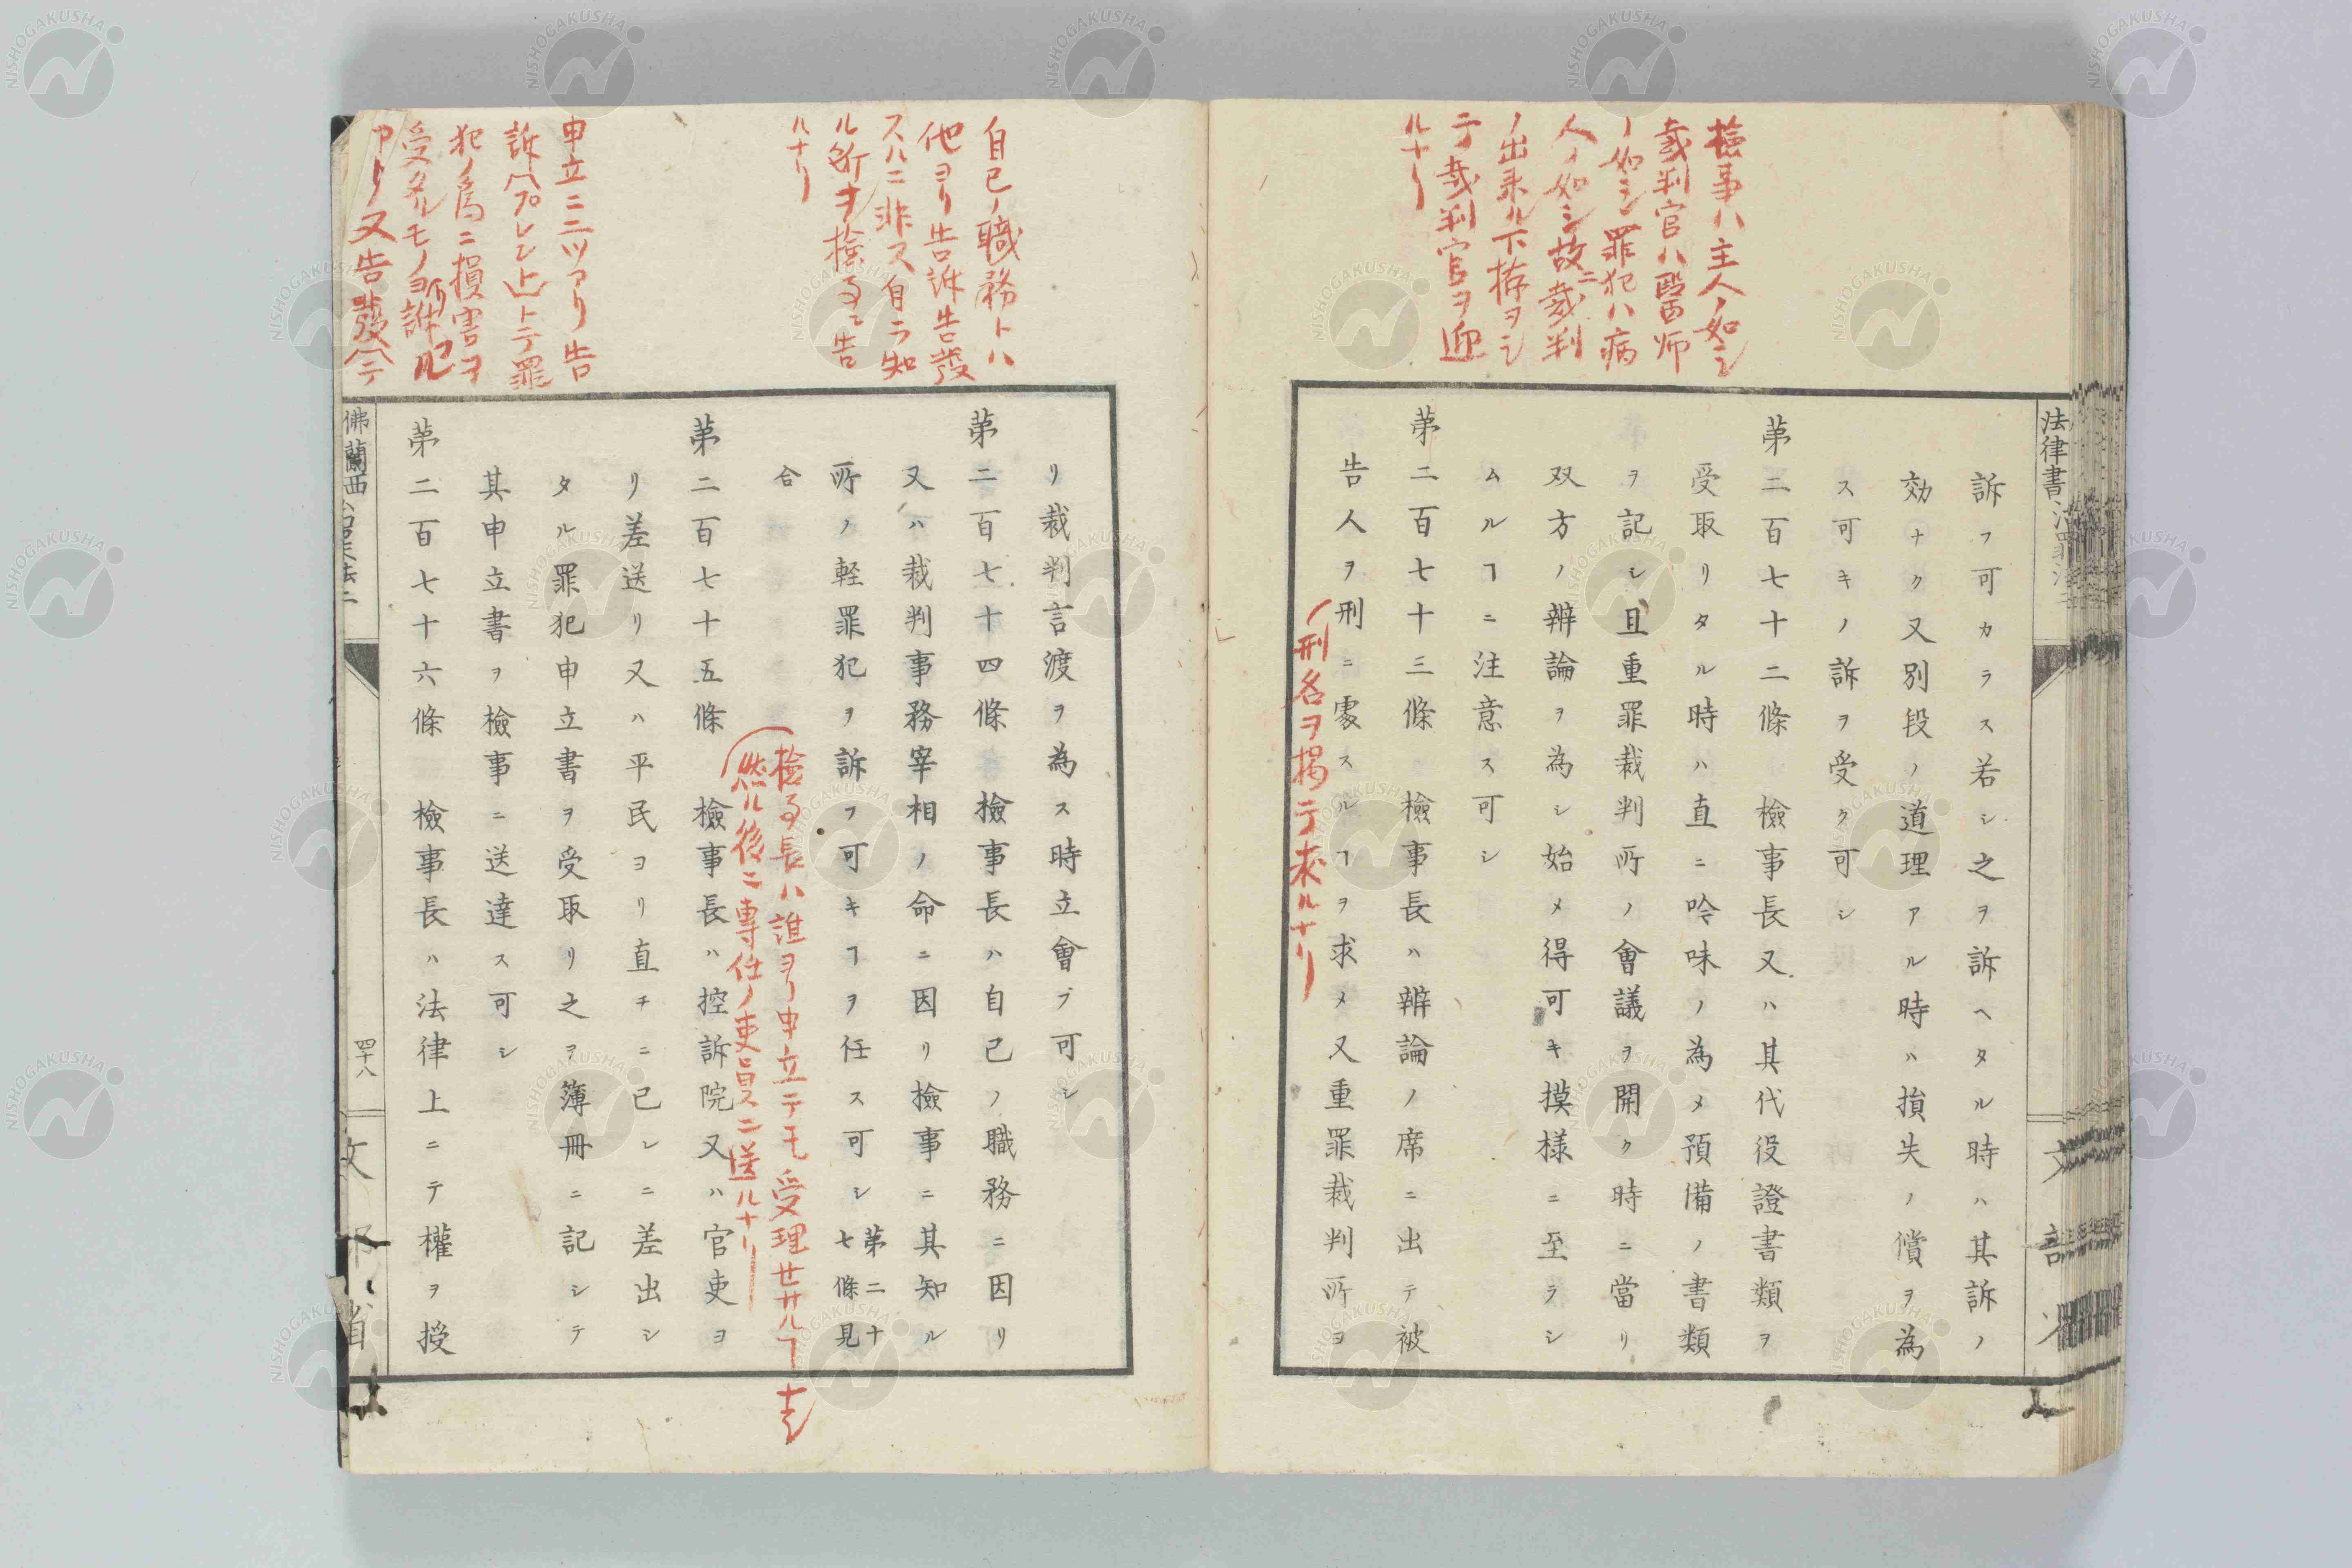 檢事ハ主人ノ如シ
裁判官ハ醫师
ノ如シ罪犯ハ病
人ノ如シ故ニ裁判
ノ出来ル下拵ヲシ
テ裁判官ヲ迎
ルナリ
法律書
訴フ可カラス若シ之ヲ訴ヘタル時ハ其訴ノ
効ナク又別段ノ道理アル時ハ損失ノ償ヲ為
ス可キノ訴ヲ受ク可シ
第二百七十二條 檢事長又ハ其代役證書類ヲ
受取リタル時ハ直ニ吟味ノ為メ預備ノ書類
ヲ記シ且重罪裁判所ノ會議ヲ開ク時ニ當リ
双方ノ辨論ヲ為シ始メ得可キ摸様ニ至ラシ
ムルヿニ注意ス可シ
第二百七十三條 檢事長ハ辨論ノ席ニ出テ被
告人ヲ刑ニ處スルヿヲ求メ又重罪裁判所ヨ
刑名ヲ掲テ求ルナリ
自己ノ職務トハ
他ヨリ告訴告發
スルニ非ス自ラ知
ル所ヲ檢事ニ告
ルナリ
申立ニ二ツアリ告
訴
罪
犯ノ爲ニ損害ヲ
受タルモノヨリ訴ル
アリ又告發
リ裁判言渡ヲ為ス時立會フ可シ
第二百七十四條 檢事長ハ自己ノ職務ニ因リ
又ハ裁判事務宰相ノ命ニ因リ檢事ニ其知ル
所ノ軽罪犯ヲ訴フ可キヿヲ任ス可シ第二十七條見
合
檢事長ハ誰ヨリ申立テモ受理セサルヿナシ
然ル後ニ專任ノ吏員ニ送ルナリ
第二百七十五條 檢事長ハ控訴院又ハ官吏ヨ
リ差送リ又ハ平民ヨリ直チニ己レニ差出シ
タル罪犯申立書ヲ受取リ之ヲ簿冊ニ記シテ
其申立書ヲ檢事ニ送達ス可シ
第二百七十六條 檢事長ハ法律上ニテ權ヲ授
佛蘭西
四十八
文部省
NISHOGAKUSHA